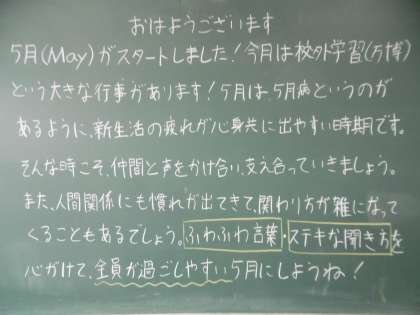 おはようございます
5月(May)がスタートしました!今月は校外学習(万博)
という大きな行事があります!5月は、5月病というのが
あるように、新生活の疲れが心身共に出やすい時期です。
そんな時こそ、仲間と声をかけ合い、支え合っていきましょう。
また、人間関係にも慣れが出てきて、関わり方が雑になって
くることもあるでしょう。ふわふわ言葉・ステキな聞き方を
心がけて、全員が過ごしやすい5月にしようね!